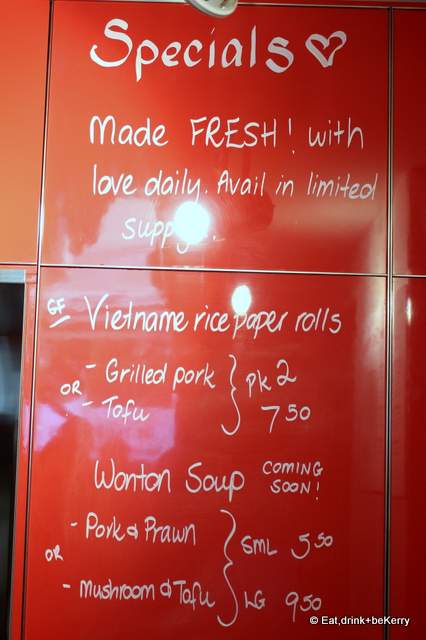 Specials
Made FRESH! with
love daily. Avail in limited
supply.
GF Vietname rice paper rolls
- Grilled pork
OR
- Tofu
pk 2
7 50
Wonton Soup COMING SOON!
- Pork & Prawn
OR
- Mushroom & Tofu
SML 5 50
LG 9 50
© Eat,drink+beKerry